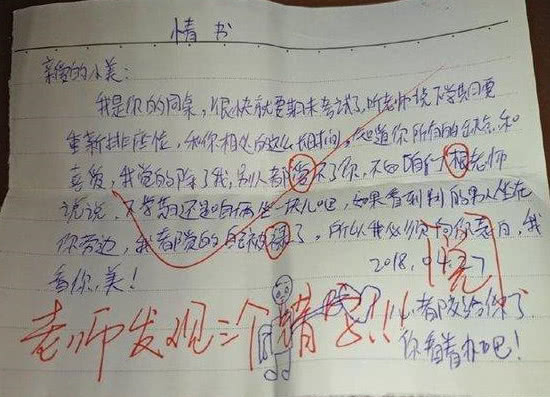 情书
亲爱的小美:
我是你的同桌,很快就要期末考试了,听老师说下学期要
重新排座位,和你相处的这么长时间,知道你所有的缺点和
喜爱,我觉的除了我,别人都爱不了你,不如咱们根老师
说说,下学期还是咱俩坐一块儿吧,如果看到别的男人坐在
你旁边,我都觉的自己被绿了,所以我必须向你表白,我
看你美!
2018.04.27
老师发现三个错
儿都没给你了
你看着办吧!